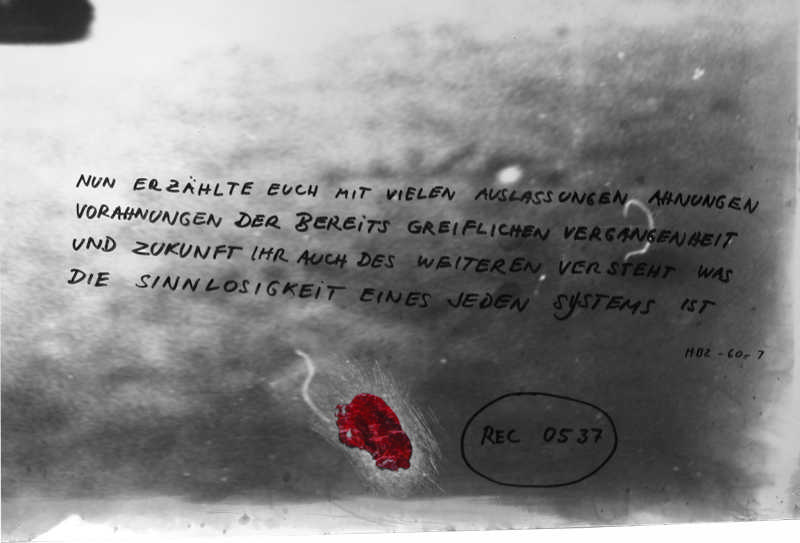 NUN ERZÄHLTE EUCH MIT VIELEN AUSLASSUNGEN AHNUNGEN
VORAHNUNGEN DER BEREITS GREIFLICHEN VERGANGENHEIT
UND ZUKUNFT IHR AUCH DES WEITEREN VERSTEHT WAS
DIE SINNLOSIGKEIT EINES JEDEN SYSTEMS IST
REC 0537